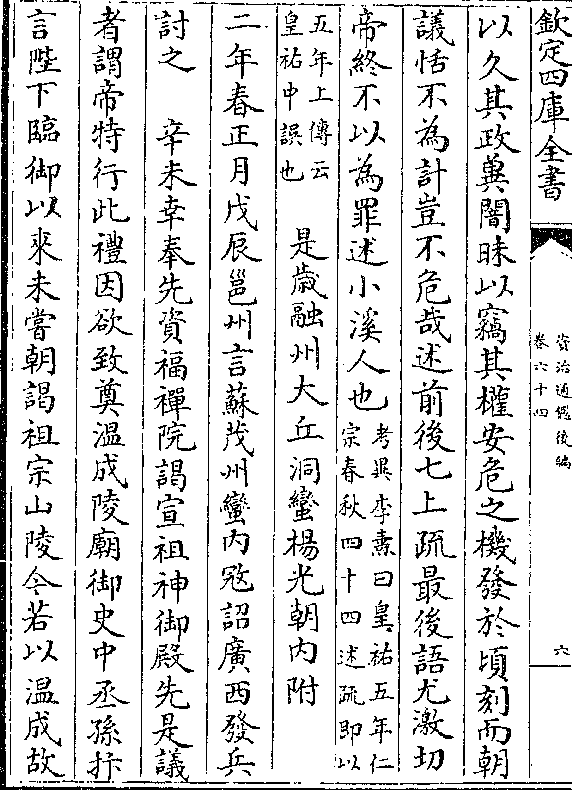 欽定四庫全書
資治通鑑後編
卷六十四
六
以久其政冀闇昧以竊其權安危之機發於頃刻而朝
議恬不為計豈不危哉述前後七上疏最後語尤激切
帝終不以為罪述小溪人也
考異李燾曰皇祐五年仁
宗春秋四十四述疏即以
五年上傳云
皇祐中誤也
是歲融州大丘洞蠻楊光朝内附
二年春正月戊辰邕州言蘇茂州蠻内宼詔廣西發兵
討之　辛未幸奉先資福禪院謁宣祖神御殿先是議
者謂帝特行此禮因欲致奠温成陵廟御史中丞孫抃
言陛下臨御以來未嘗朝謁祖宗山陵今若以温成故